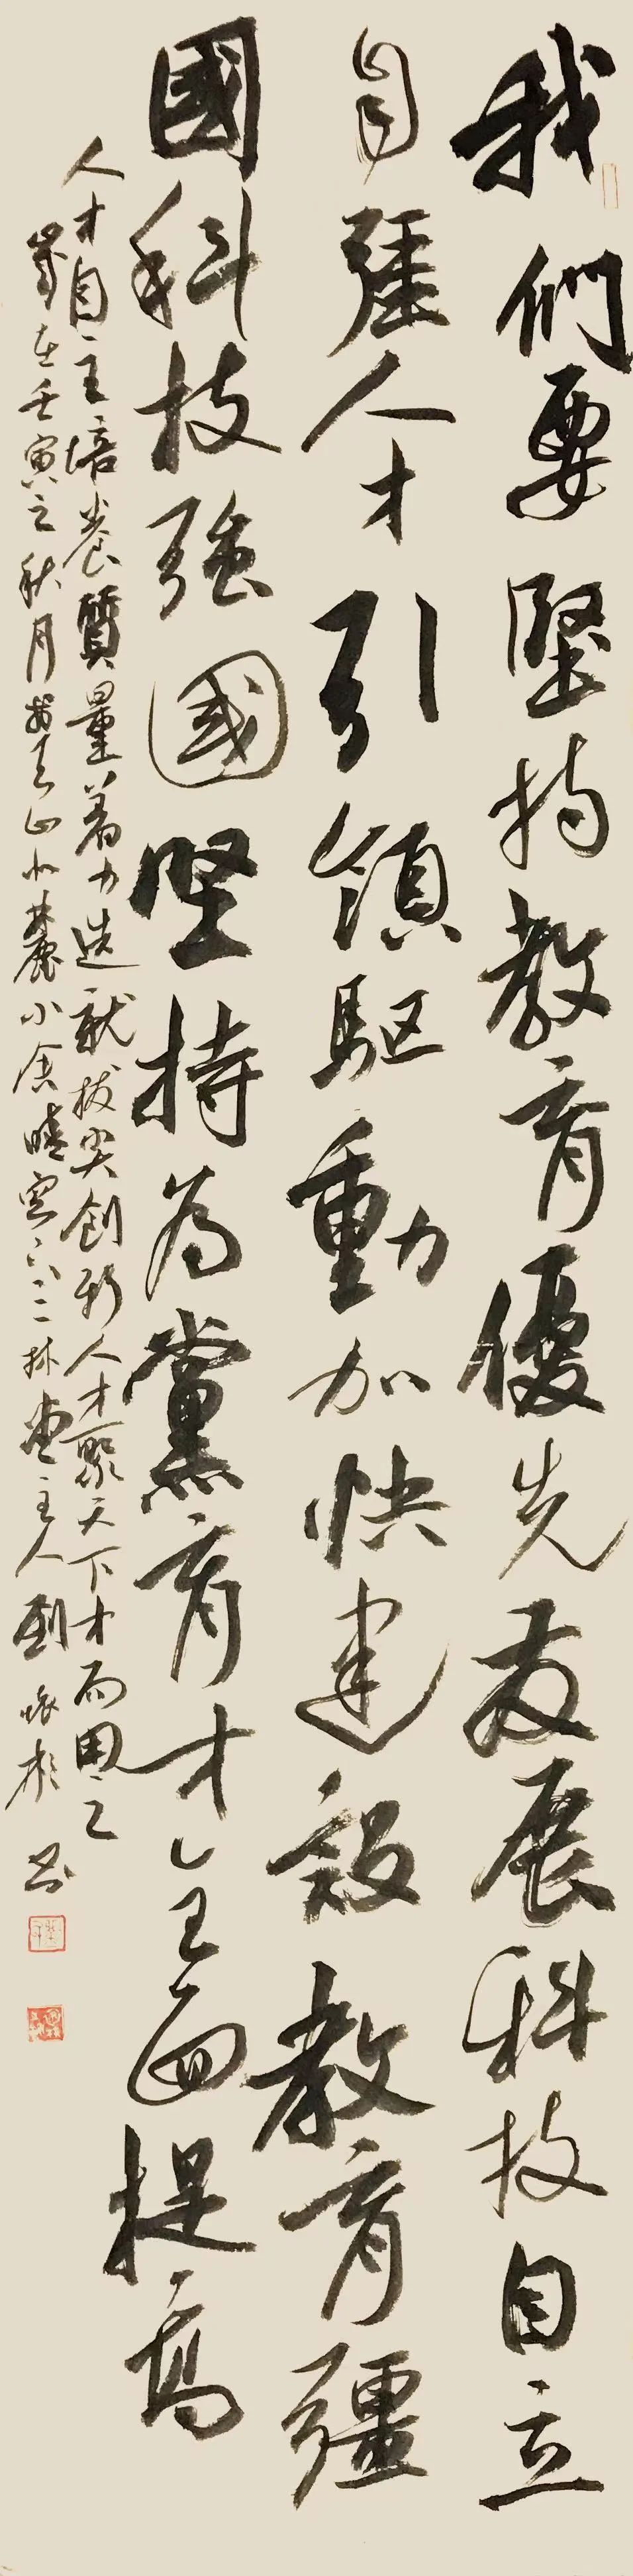 我們要堅持教育優先發展科技自立
自彊人才引領驅動加快建設教育彊
國科技強國堅持為黨育才全面提高
人才自主培養質量着力造就拔尖創新人才聚天下才而用之
歲在壬寅之秋月於天山北麓小舍晴窗下三林堂主人劉 書